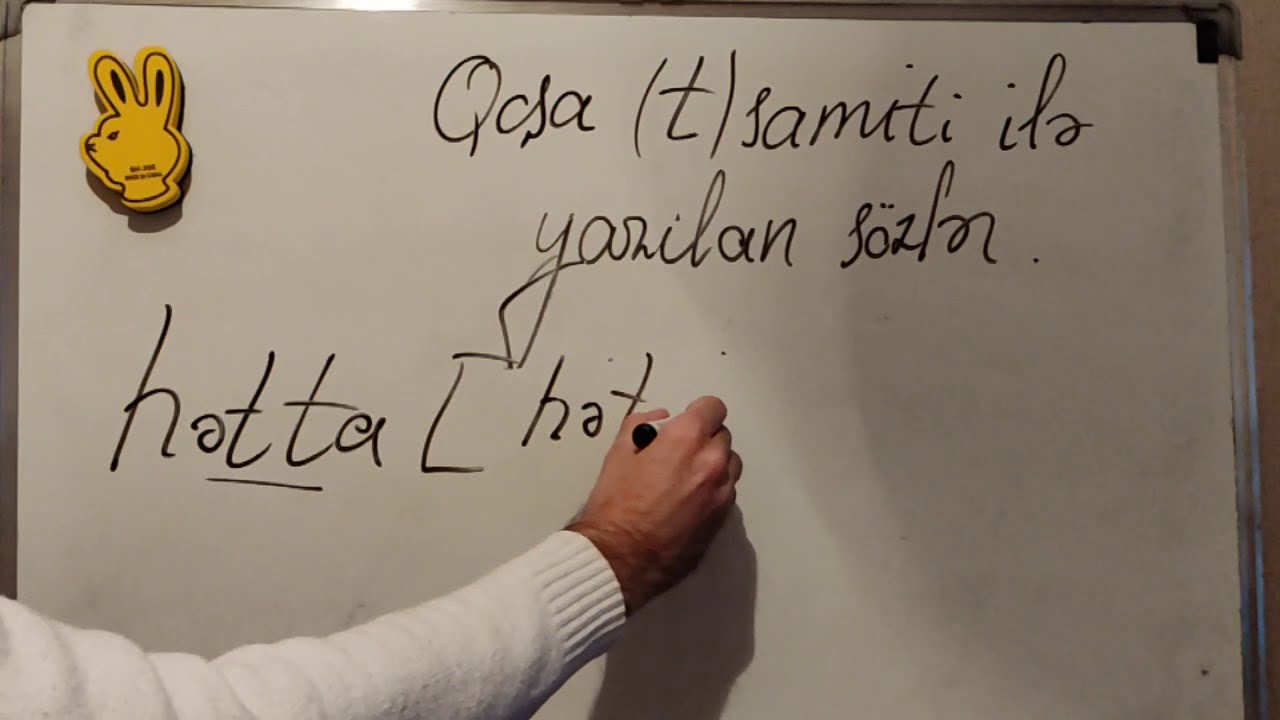 Qoşa (t) samiti ilə
yazılan sözlər.
həttta [hət